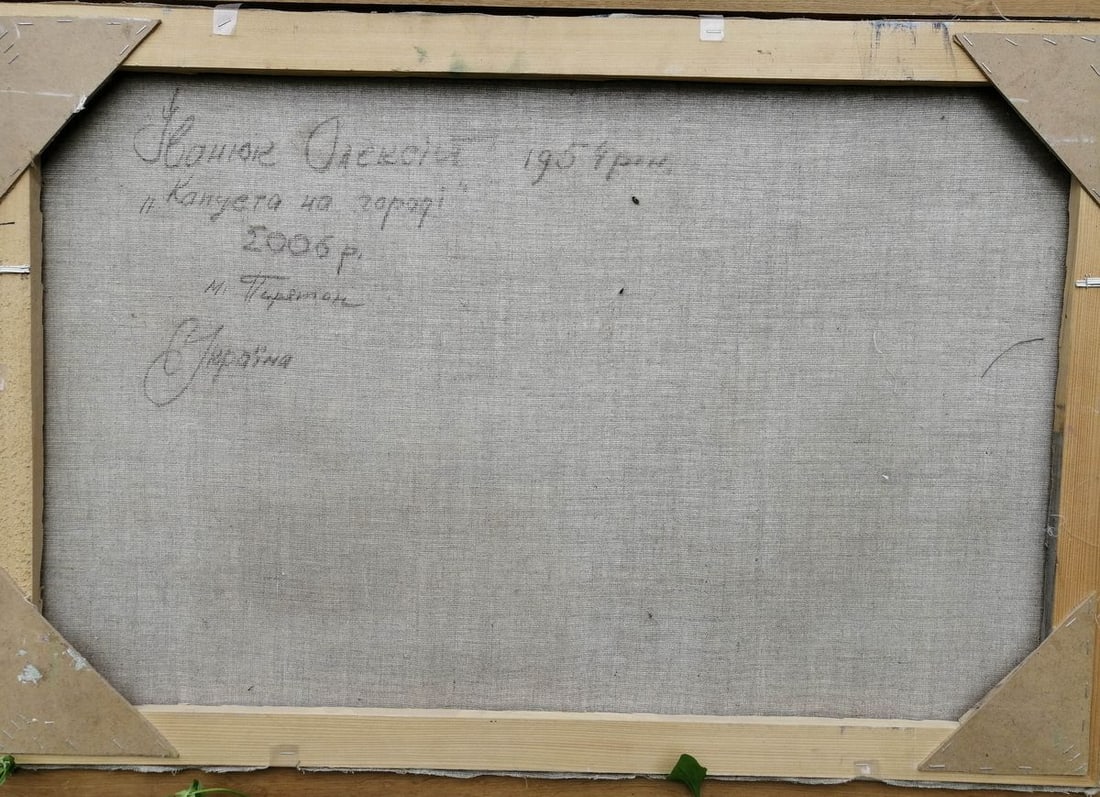 Іванюк Олексій 1954 рн.
"Капуста на городі"
2006 р.
м. Пирятин
Україна